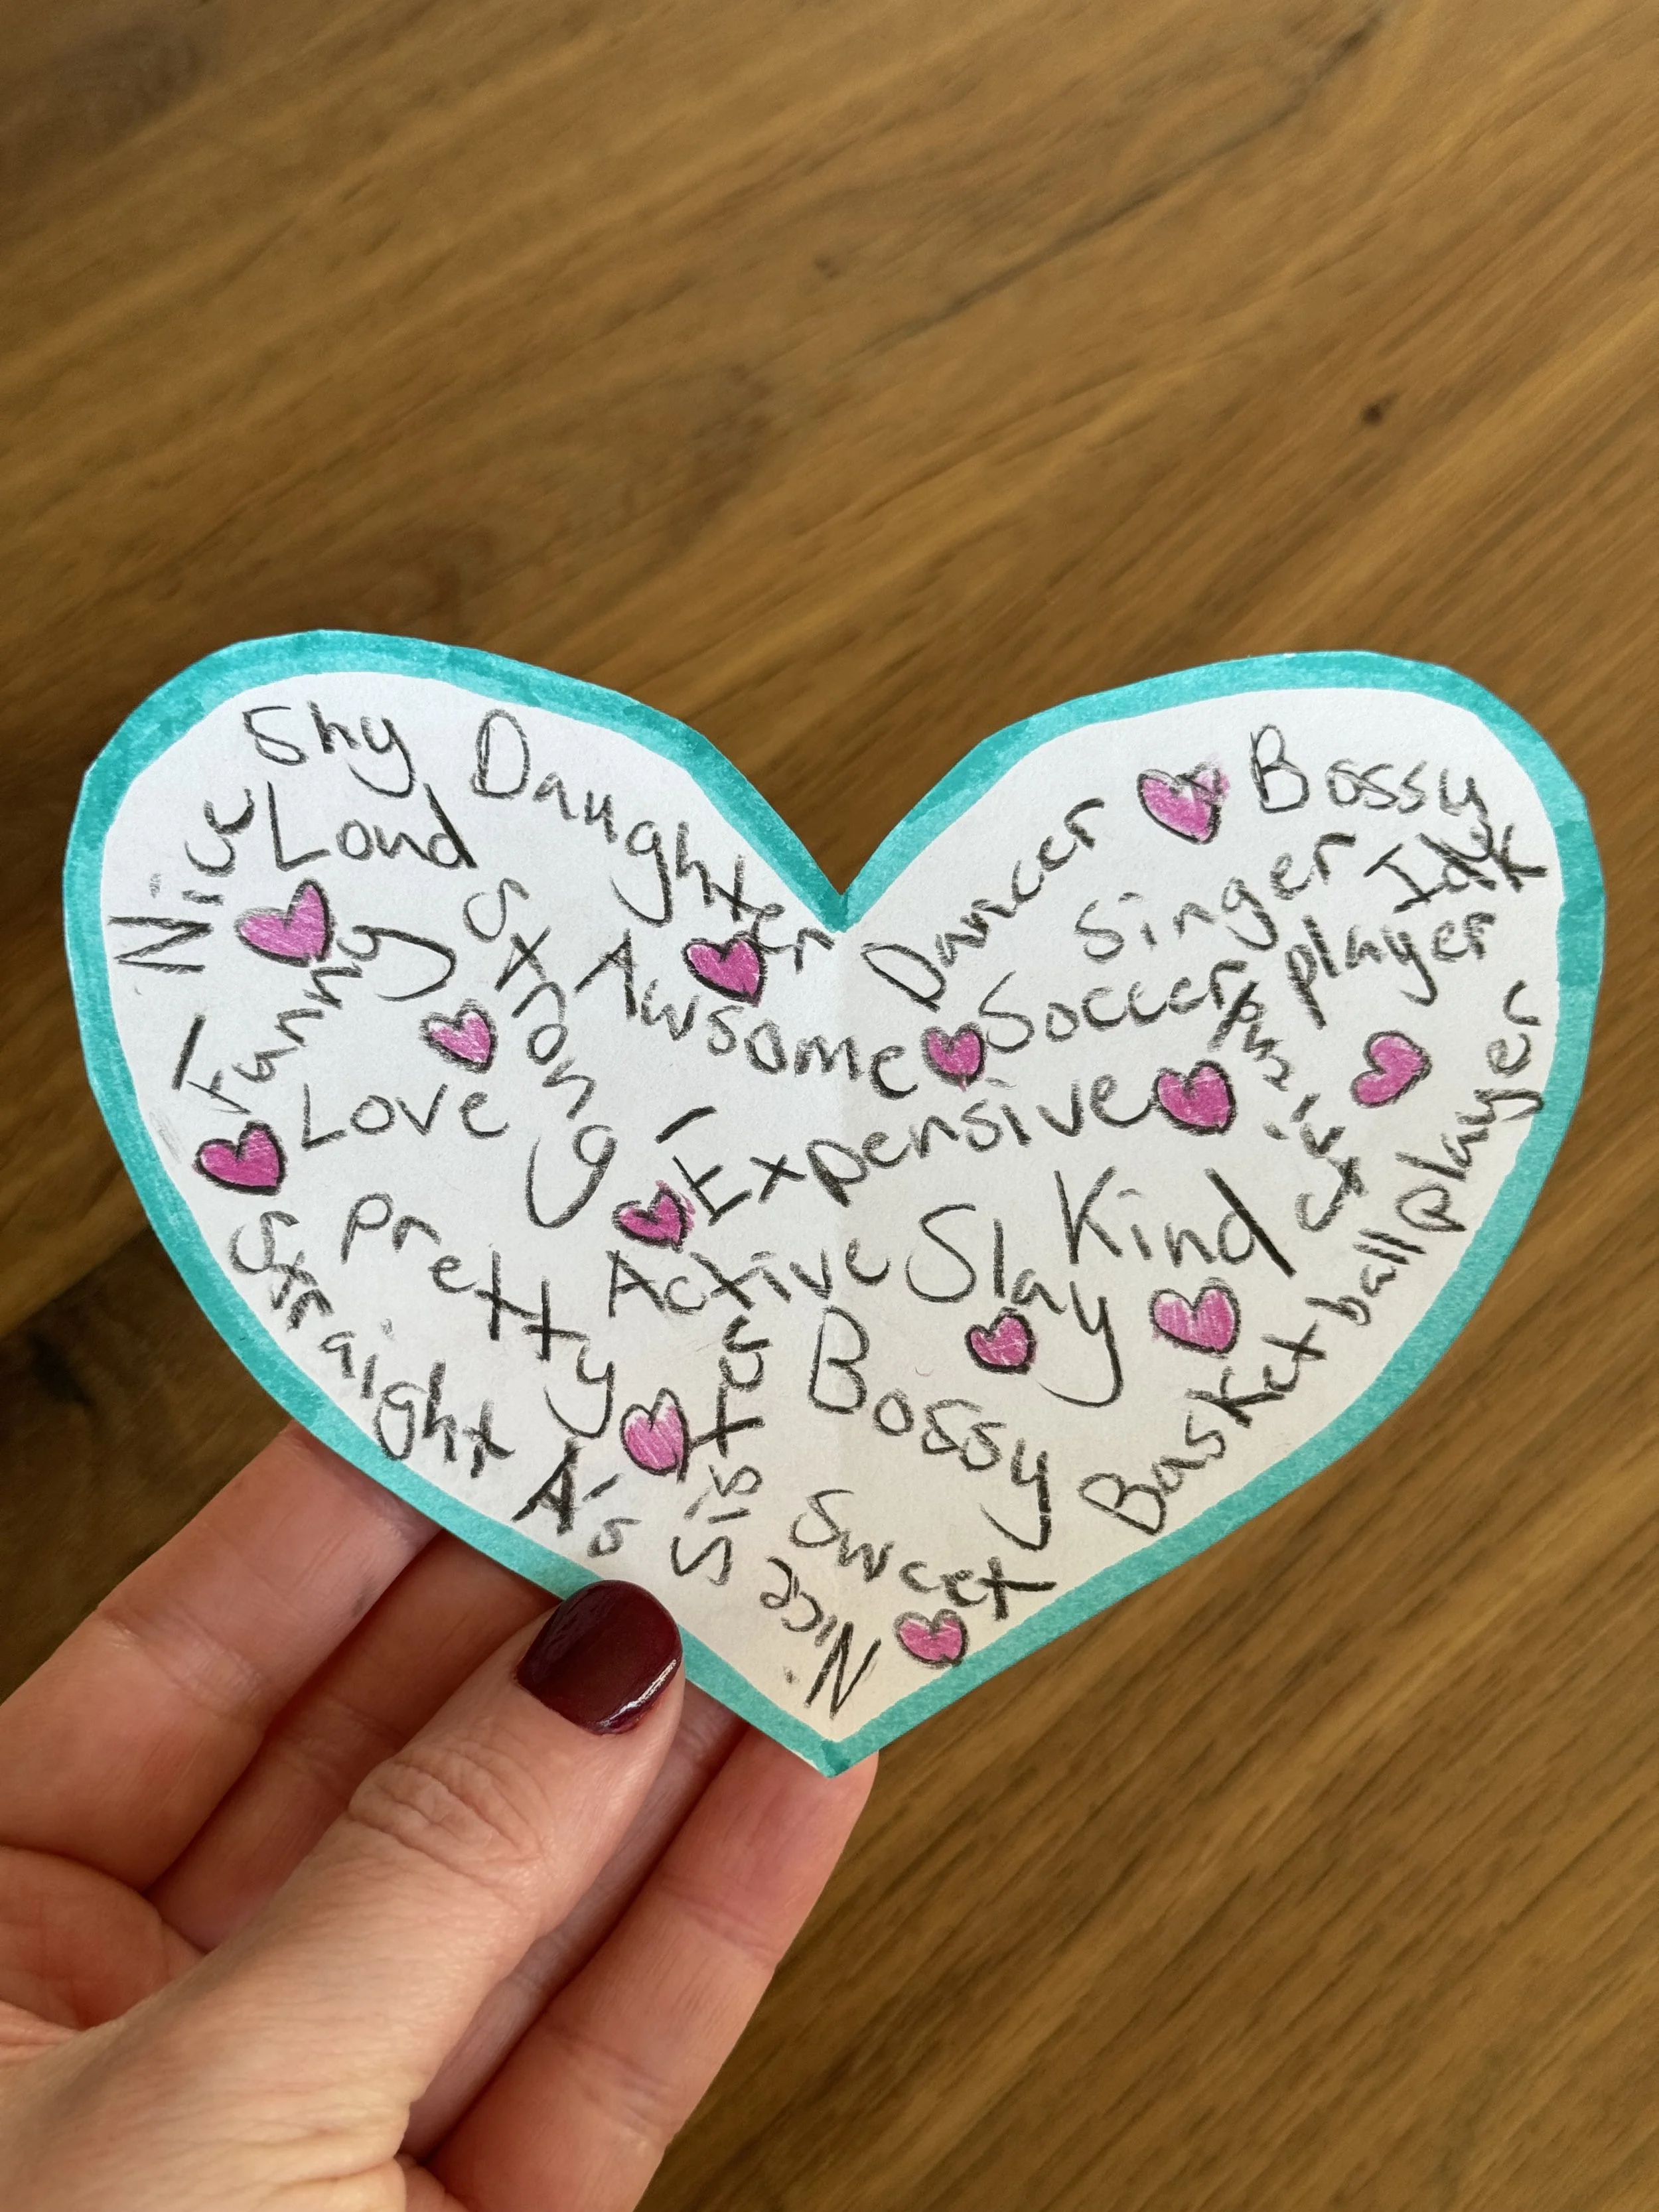 Shy
Daughter
Nice
Loud
Funny
Strong
Awsome
Love
Dancer
Bossy
Singer
Idk
Soccer player
Expensive
Pretty
Active
Slay
Kind
Straight A's
Sister
Bossy
Basket ball player
Sweet
Nice